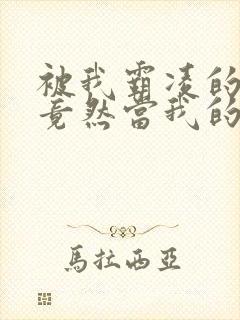 被我霸凌的
竟然當我的
馬拉西亞